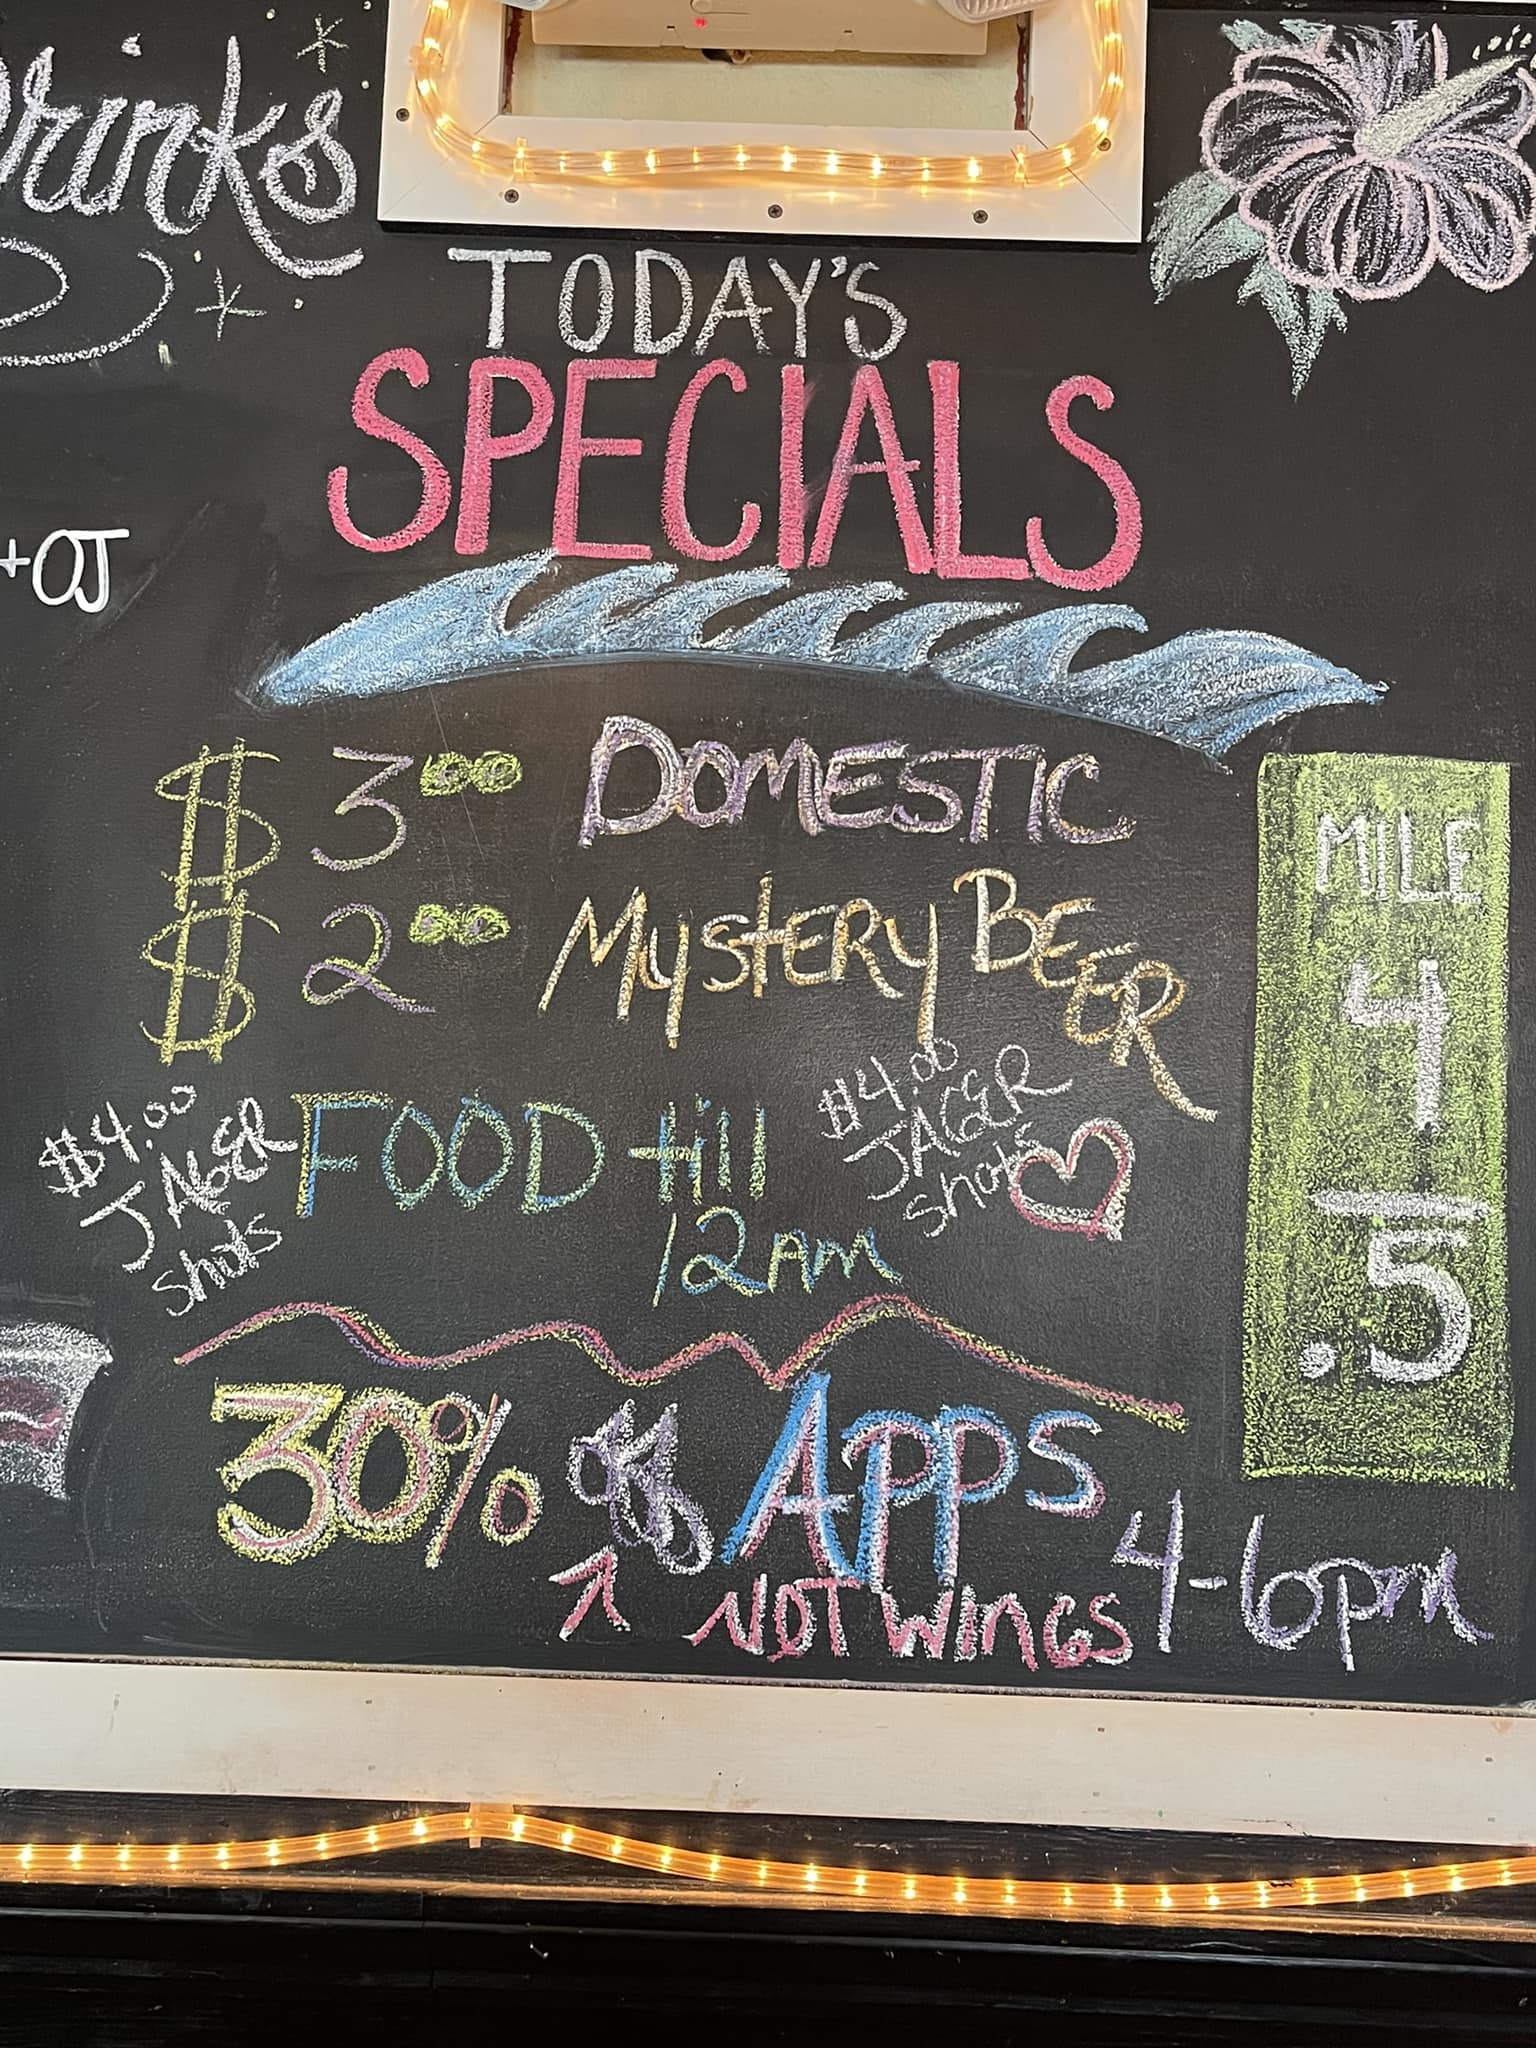 Drinks
+OJ
TODAY'S
SPECIALS
$3.00 DOMESTIC
$2.00 MYSTERY BEER
$4.00
JAGER
shots
FOOD till
12AM
$4.00
JAGER
shots
30% off APPS 4-6pm
NOT WINGS
MILE
4
.5